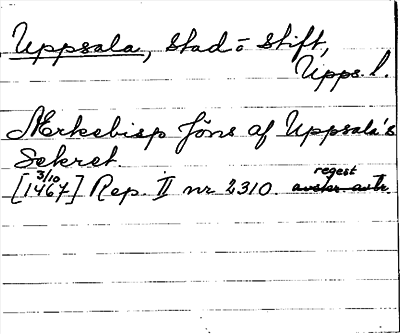 Uppsala, stad o stift,
Upps. l.
Ærkebisp Jöns af Uppsala's
Sekret.
[3/10 1467] Rep. II nr 2310. regest